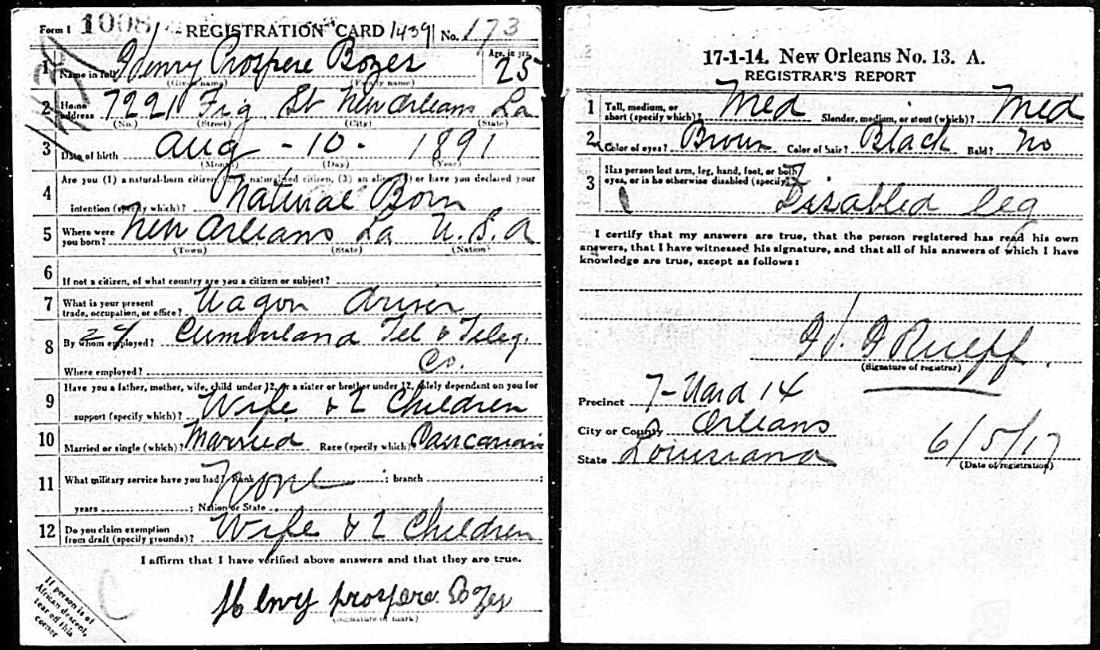 Form 1 1008 REGISTRATION CARD 1439 No. 173
1 Name in full Henry Prospere Bozes Age, in yrs. 25
(Given name) (Family name)
2 Home address 7221 Fig St New Orleans La
(No.) (Street) (City) (State)
3 Date of birth Aug - 10 - 1891
(Month) (Day) (Year)
4 Are you (1) a natural-born citizen, (2) a naturalized citizen, (3) an alien, (4) or have you declared your
intention (specify which)? Natural Born
5 Where were you born? New Orleans La U.S.A
(Town) (State) (Nation)
6 If not a citizen, of what country are you a citizen or subject?
7 What is your present trade, occupation, or office? Wagon driver
8 By whom employed? Cumberland Tel & Teleg.
Where employed? Co.
9 Have you a father, mother, wife, child under 12, or a sister or brother under 12, solely dependent on you for
support (specify which)? Wife & 2 Children
10 Married or single (which)? Married Race (specify which)? Caucasian
11 What military service have you had? Rank None ; branch ;
years ; Nation or State
12 Do you claim exemption from draft (specify grounds)? Wife & 2 Children
I affirm that I have verified above answers and that they are true.
Henry prospere Bozes
(Signature or mark)
If person is of
African descent,
tear off this
corner
17-1-14. New Orleans No. 13. A.
REGISTRAR'S REPORT
1 Tall, medium, or short (specify which)? Med Slender, medium, or stout (which)? Med
2 Color of eyes? Brown Color of hair? Black Bald? No
3 Has person lost arm, leg, hand, foot, or both eyes, or is he otherwise disabled (specify)?
Disabled leg
I certify that my answers are true, that the person registered has read his own
answers, that I have witnessed his signature, and that all of his answers of which I have
knowledge are true, except as follows:
Rueff
(Signature of registrar)
Precinct 7 - Ward 14
City or County Orleans
State Louisiana
6/5/17
(Date of registration)